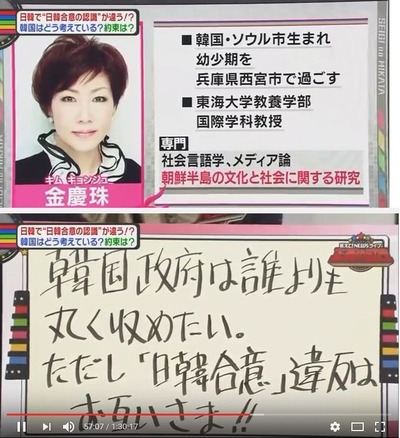 日韓で"日韓合意の認識"が違う!?
韓国はどう考えている?約束は?
■韓国・ソウル市生まれ
幼少期を
兵庫県西宮市で過ごす
■東海大学教養学部
国際学科教授
キム キョンジュ
金慶珠
専門
社会言語学、メディア論
朝鮮半島の文化と社会に関する研究
SEIGI no MIKATA
日韓で"日韓合意の認識"が違う!?
韓国はどう考えている?約束は?
韓国政府は誰よりも
丸く収めたい。
ただし「日韓合意」違反は
お互いさま!!
57:07 / 1:30:17